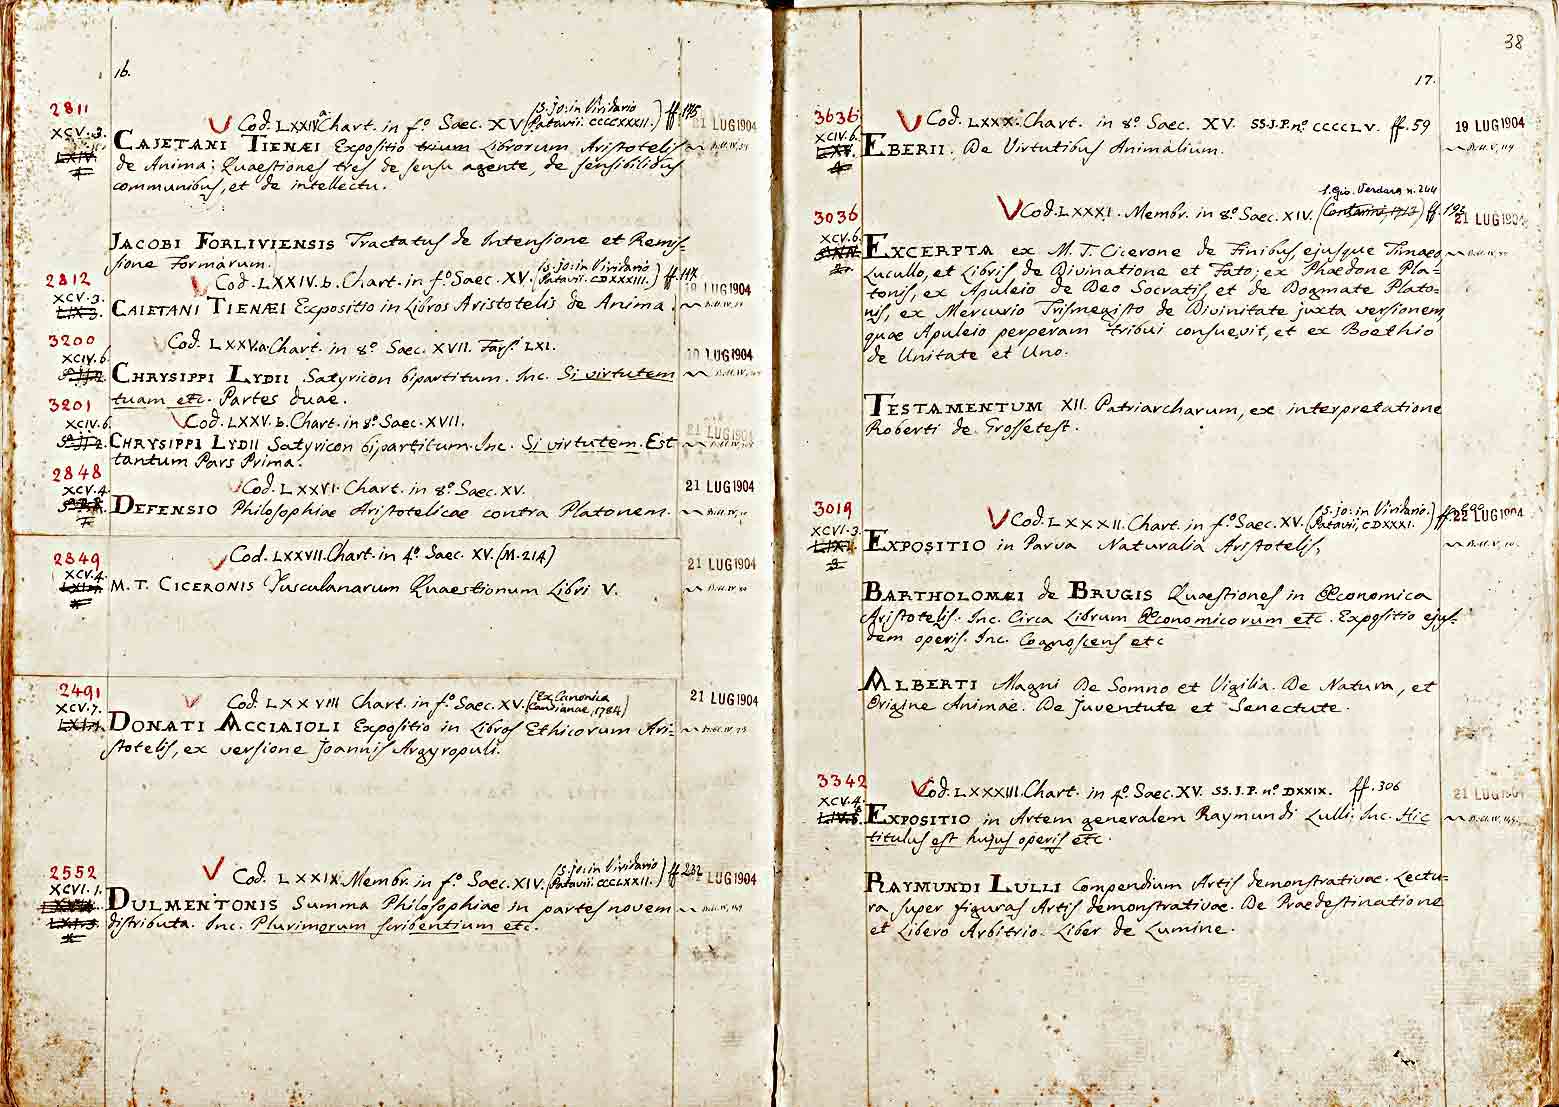 16.
2811
XCV.3.
Cod. LXXIV.a Chart. in fo. Saec. XV (S. Jo: in Viridario Patavii. CCCCXXXII.) ff. 175
21 LUG 1904
CAJETANI TIENÆI Expositio trium Librorum Aristotelis
de Anima; Quaestiones tres de sensu agente, de sensibilibus
communibus, et de intellectu.
JACOBI FORLIVIENSIS Tractatus de Intensione et Remis-
sione Formarum.
2812
XCV.3.
Cod. LXXIV.b. Chart. in fo. Saec. XV. (S. Jo: in Viridario Patavii. CDXXXIII.) ff. 117
LUG 1904
CAIETANI TIENÆI Expositio in Libros Aristotelis de Anima.
3200
XCIV.6.
Cod. LXXV.a. Chart. in 8o. Saec. XVII. Fars. LXI.
LUG 1904
CHRYSIPPI LYDII Satyricon bipartitum. Inc. Si virtutem
tuam etc. Partes duae.
3201
XCIV.6.
Cod. LXXV.b. Chart. in 8o. Saec. XVII.
21 LUG 1904
CHRYSIPPI LYDII Satyricon bipartitum. Inc. Si virtutem. Est
tantum Pars Prima.
2848
XCV.4.
Cod. LXXVI. Chart. in 8o. Saec. XV.
21 LUG 1904
DEFENSIO Philosophiae Aristotelicae contra Platonem.
2849
XCV.4.
Cod. LXXVII. Chart. in 4o. Saec. XV. (M. 214)
21 LUG 1904
M. T. CICERONIS Tusculanarum Quaestionum Libri V.
2491
XCV.7.
Cod. LXXVIII Chart. in fo. Saec. XV. (Ex Canonica Candianae, 1784)
21 LUG 1904
DONATI ACCIAIOLI Expositio in Libros Ethicorum Ari-
stotelis, ex versione Joannis Argyropuli.
2552
XCVI.1.
Cod. LXXIX. Membr. in fo. Saec. XIV. (S. Jo: in Viridario Patavii. CCCLXXII.) ff. 232
LUG 1904
DULMENTONIS Summa Philosophiae in partes novem
distributa. Inc. Plurimorum scribentium etc.
38
17.
3636
XCIV.6.
Cod. LXXX. Chart. in 8o. Saec. XV. SS. J. P. no. CCCCLV. ff. 59
19 LUG 1904
EBERII. De Virtutibus Animalium.
3036
XCV.6.
S. Gio. Verdara n. 244
Cod. LXXXI. Membr. in 8o. Saec. XIV. (Contarini, 1713) ff. 192
21 LUG 1904
EXCERPTA ex M. T. Cicerone de Finibus, ejusque Timaeo,
Lucullo, et Libris de Divinatione et Fato; ex Phaedone Pla-
tonis, ex Apuleio de Deo Socratis, et de Dogmate Plato-
nis, ex Mercurio Trismegisto de Divinitate juxta versionem,
quae Apuleio perperam tribui consuevit, et ex Boethio
de Unitate et Uno.
TESTAMENTUM XII. Patriarcharum, ex interpretatione
Roberti de Grossetest.
3019
XCVI.3.
Cod. LXXXII. Chart. in fo. Saec. XV. (S. Jo: in Viridario. Patavii, CDXXXI.) ff.
22 LUG 1904
EXPOSITIO in Parva Naturalia Aristotelis,
BARTHOLOMÆI de BRUGIS Quaestiones in Œconomica
Aristotelis. Inc. Circa Librum Œconomicorum etc. Expositio ejus-
dem operis. Inc. Cognoscens etc
ALBERTI Magni De Somno et Vigilia. De Natura, et
Origine Animae. De Juventute et Senectute.
3342
XCV.4.
Cod. LXXXIII. Chart. in 4o. Saec. XV. SS. J. P. no. DXXIX. ff. 306
21 LUG 1904
EXPOSITIO in Artem generalem Raymundi Lulli. Inc. Hic
titulus est hujus operis etc.
RAYMUNDI LULLI Compendium Artis demonstrativae. Lectu-
ra super figuras Artis demonstrativae. De Praedestinatione
et Libero Arbitrio. Liber de Lumine.